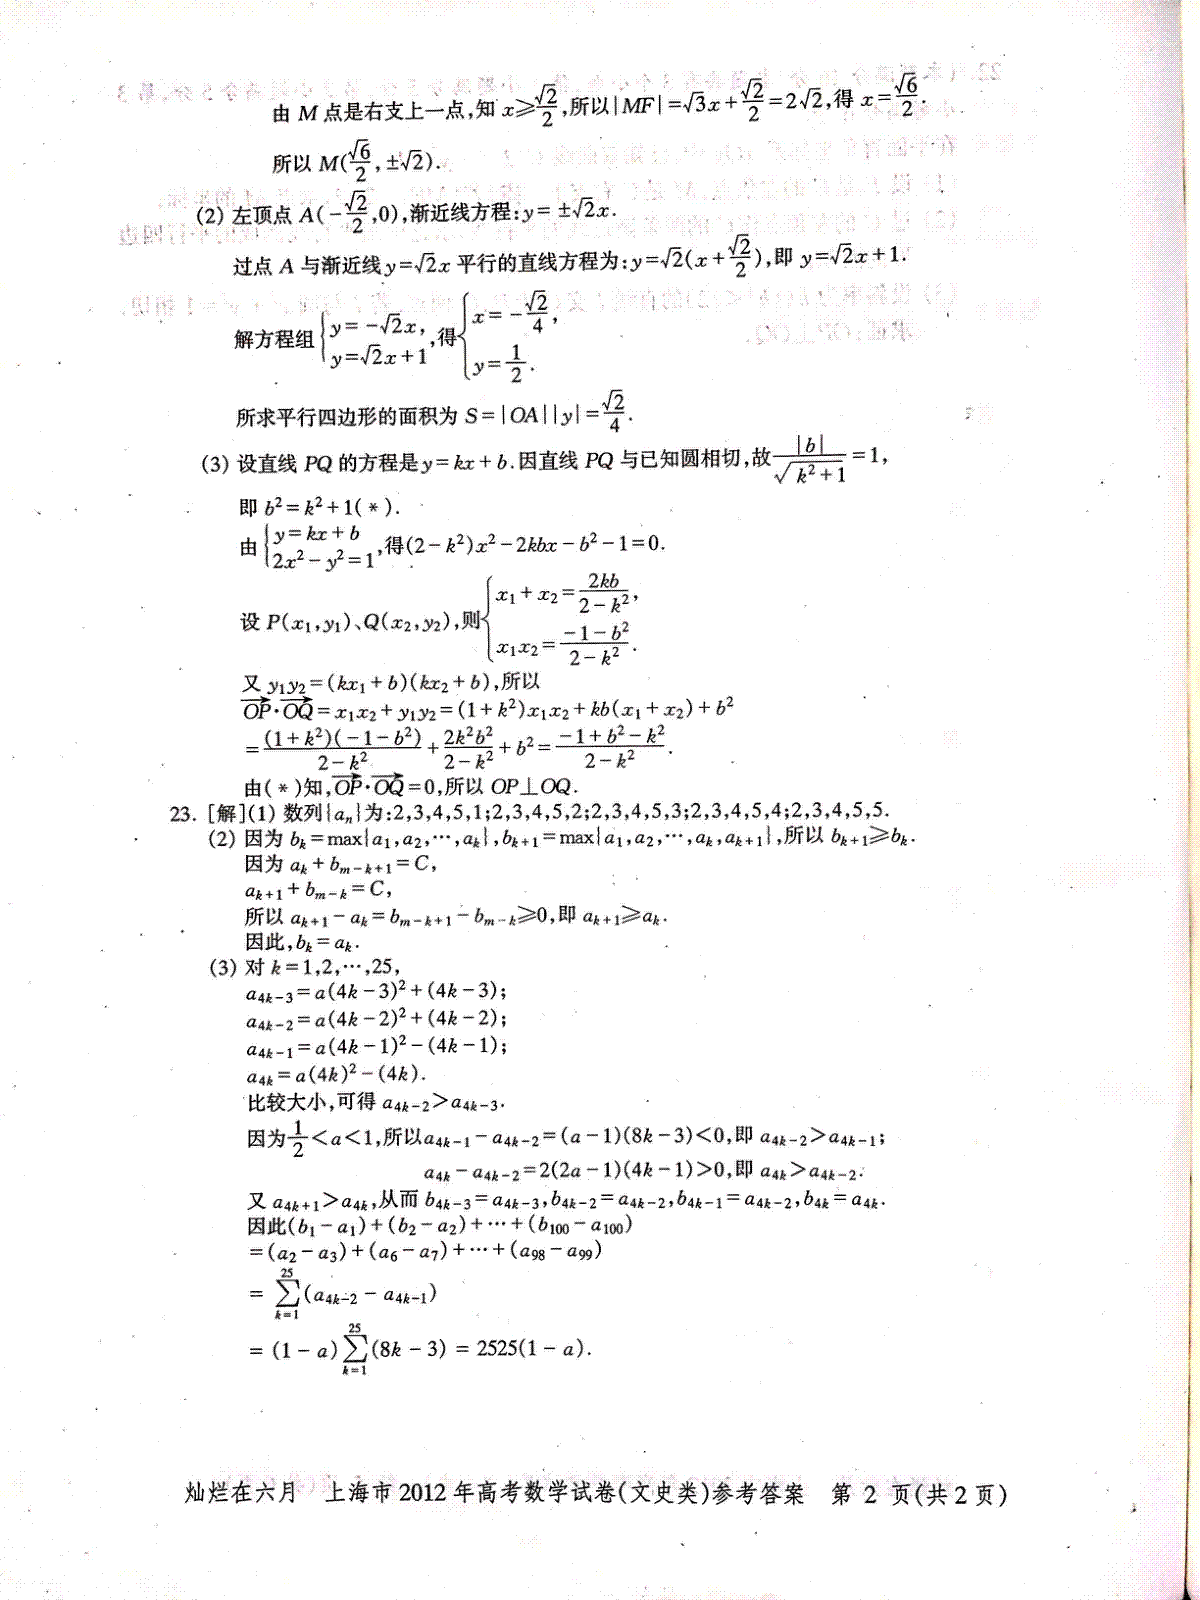 由 M 点是右支上一点,知 x≥√2/2,所以|MF|=√3x+√2/2=2√2,得 x=√6/2.
所以 M(√6/2,±√2).
(2) 左顶点 A(-√2/2,0),渐近线方程:y=±√2x.
过点 A 与渐近线y=√2x 平行的直线方程为:y=√2(x+√2/2),即 y=√2x+1.
解方程组{y=-√2x, y=√2x+1,得{x=-√2/4, y=1/2.
所求平行四边形的面积为 S=|OA||y|=√2/4.
(3) 设直线 PQ 的方程是y=kx+b.因直线 PQ 与已知圆相切,故|b|/√(k²+1)=1,
即 b²=k²+1(*).
由{y=kx+b 2x²-y²=1,得(2-k²)x²-2kbx-b²-1=0.
设 P(x₁,y₁)、Q(x₂,y₂),则{x₁+x₂=2kb/(2-k²), x₁x₂=(-1-b²)/(2-k²).
又 y₁y₂=(kx₁+b)(kx₂+b),所以
OP·OQ=x₁x₂+y₁y₂=(1+k²)x₁x₂+kb(x₁+x₂)+b²
=(1+k²)(-1-b²)/(2-k²)+2k²b²/(2-k²)+b²=(-1+b²-k²)/(2-k²).
由(*)知,OP·OQ=0,所以 OP⊥OQ.
23. [解](1) 数列{aₙ}为:2,3,4,5,1;2,3,4,5,2;2,3,4,5,3;2,3,4,5,4;2,3,4,5,5.
(2) 因为 bₖ=max{a₁,a₂,…,aₖ},bₖ₊₁=max{a₁,a₂,…,aₖ,aₖ₊₁},所以 bₖ₊₁≥bₖ.
因为 aₖ+bₘ₋ₖ₊₁=C,
aₖ₊₁+bₘ₋ₖ=C,
所以 aₖ₊₁-aₖ=bₘ₋ₖ₊₁-bₘ₋ₖ≥0,即 aₖ₊₁≥aₖ.
因此,bₖ=aₖ.
(3) 对 k=1,2,…,25,
a₄ₖ₋₃=a(4k-3)²+(4k-3);
a₄ₖ₋₂=a(4k-2)²+(4k-2);
a₄ₖ₋₁=a(4k-1)²-(4k-1);
a₄ₖ=a(4k)²-(4k).
比较大小,可得 a₄ₖ₋₂>a₄ₖ₋₃.
因为1/2<a<1,所以a₄ₖ₋₁-a₄ₖ₋₂=(a-1)(8k-3)<0,即 a₄ₖ₋₂>a₄ₖ₋₁;
a₄ₖ-a₄ₖ₋₂=2(2a-1)(4k-1)>0,即 a₄ₖ>a₄ₖ₋₂.
又 a₄ₖ₊₁>a₄ₖ,从而 b₄ₖ₋₃=a₄ₖ₋₃,b₄ₖ₋₂=a₄ₖ₋₂,b₄ₖ₋₁=a₄ₖ₋₂,b₄ₖ=a₄ₖ.
因此(b₁-a₁)+(b₂-a₂)+…+(b₁₀₀-a₁₀₀)
=(a₂-a₃)+(a₆-a₇)+…+(a₉₈-a₉₉)
=∑(k=1→25)(a₄ₖ₋₂-a₄ₖ₋₁)
=(1-a)∑(k=1→25)(8k-3)=2525(1-a).
灿烂在六月 上海市2012年高考数学试卷(文史类)参考答案 第 2 页(共2页)